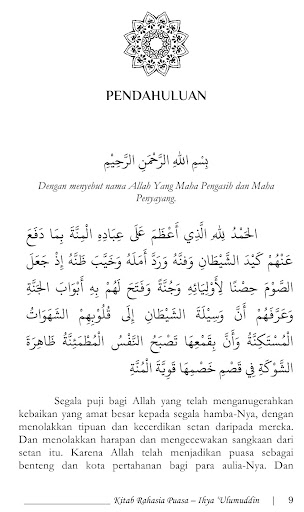 PENDAHULUAN
بِسْمِ اللهِ الرَّحْمَنِ الرَّحِيْمِ
Dengan menyebut nama Allah Yang Maha Pengasih dan Maha
Penyayang.
الحَمْدُ لِلَّهِ الَّذِي أَعْظَمَ عَلَى عِبَادِهِ الْمِنَّةَ بِمَا دَفَعَ
عَنْهُمْ كَيْدَ الشَّيْطَانِ وَفَنَّهُ وَرَدَّ أَمَلَهُ وَخَيَّبَ ظَنَّهُ إِذْ جَعَلَ
الصَّوْمَ حِصْنًا لِأَوْلِيَائِهِ وَجُنَّةً وَفَتَحَ لَهُمْ بِهِ أَبْوَابَ الجَنَّةِ
وَعَرَّفَهُمْ أَنَّ وَسِيْلَةَ الشَّيْطَانِ إِلَى قُلُوبِهِمْ الشَّهَوَاتُ
الْمُسْتَكِنَّةُ وَأَنَّ بِقَمْعِهَا تَصْبَحُ النَّفْسُ الْمُطْمَئِنَّةُ ظَاهِرَةَ
الشَّوْكَةِ فِي قَصْمِ خَصْمِهَا قَوِيَّةَ الْمُنَّةِ
Segala puji bagi Allah yang telah menganugerahkan
kebaikan yang amat besar kepada segala hamba-Nya, dengan
menolakkan tipuan dan kecerdikan setan daripada mereka.
Dan menolakkan harapan dan mengecewakan sangkaan dari
setan itu. Karena Allah telah menjadikan puasa sebagai
benteng dan kota pertahanan bagi para aulia-Nya. Dan
Kitab Rahasia Puasa – Ihya 'Ulumuddin | 9